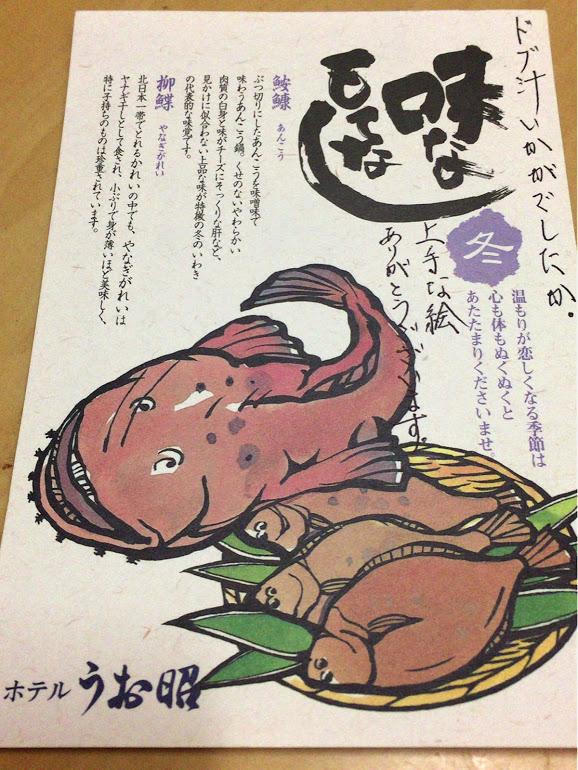 ドブ汁いかがでしたか.
上手な絵
ありがとうございます。
味な
もてなし
冬
温もりが恋しくなる季節は
心も体もぬくぬくと
あたたまりくださいませ。
鮟鱇 あんこう
ぶつ切りにしたあんこうを味噌味で
味わうあんこう鍋。くせのないやわらかい
肉質の白身と味がチーズにそっくりな肝など、
見かけに似合わない上品な味が特徴の冬のいわき
の代表的な味覚です。
柳鰈 やなぎがれい
北日本一帯でとれるかれいの中でも、やなぎがれいは
ヤナギ干しとして食され、小ぶりで身が薄いほど美味しく、
特に子持ちのものは珍重されています。
ホテル うお昭